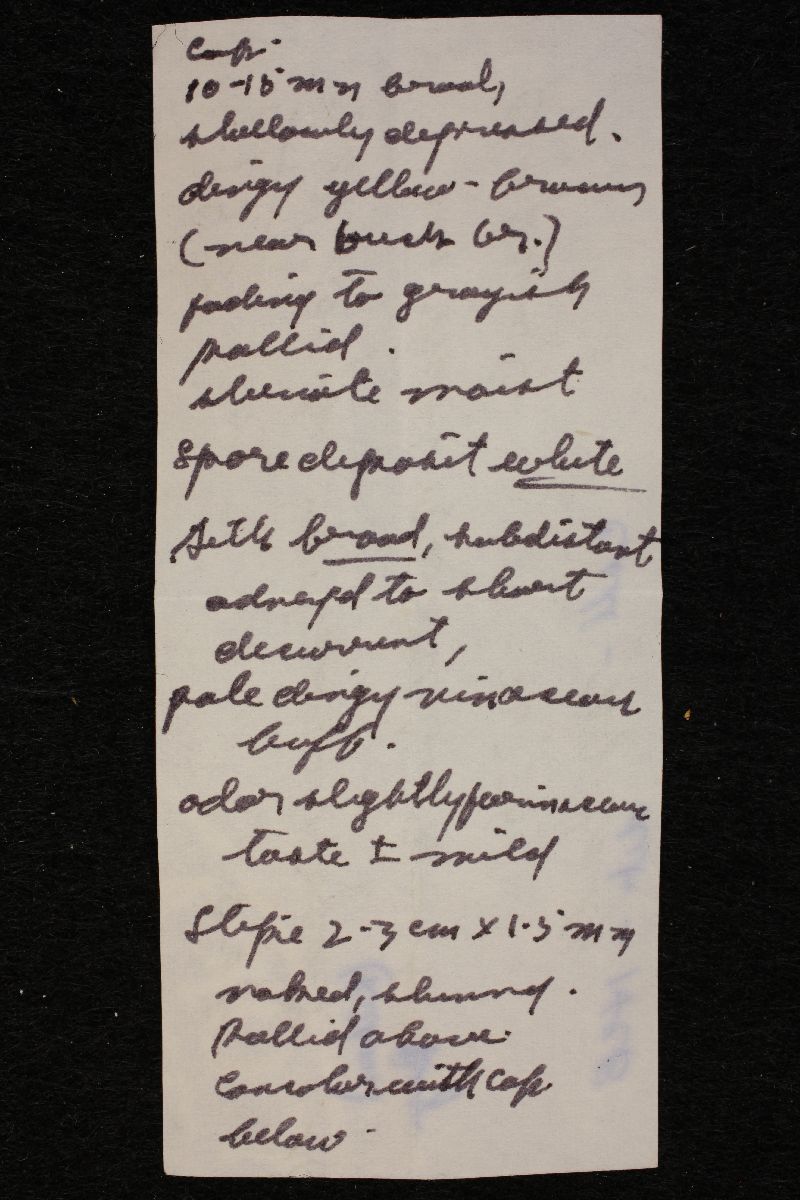 Cap.
10-15 mm broad,
shallowly depressed.
dingy yellow-brown
(near buck br.)
fading to grayish
pallid.
striate moist
Spore deposit white
Gills broad, subdistant
adnexed to short
decurrent,
pale dingy vinaceous
buff.
odor slightly farinaceous
taste ± mild
Stipe 2-3 cm x 1.5 mm
naked, shining.
Pallid above
concolor with cap
below